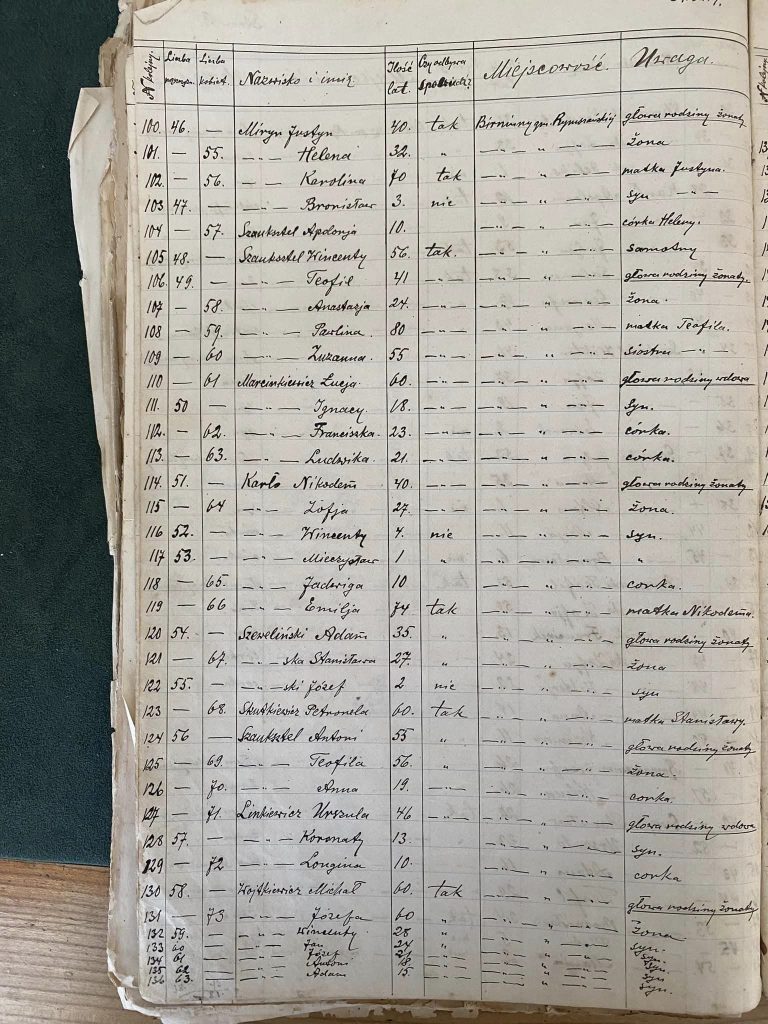 № kolejny. Liczba mężczyzn. Liczba kobiet. Nazwisko i imię Ilość lat. Czy odbywa spowiedź? Miejscowość. Uwaga.
100. 46. — Miryn Justyn 40. tak Birniuny gm. głowa rodziny żonaty
101. — 55. —"— Helena 32. " —"— " —"— żona
102. — 56. —"— Karolina 70 tak —"— " —"— matka Justyna.
103 47. — —"— Bronisław 3. nie —"— " —"— syn —"—
104 — 57. Szauksztel Apolonja 10. —"— —"— " —"— córka Heleny.
105 48. — Szauksztel Wincenty 56. tak. —"— " —"— samotny
106. 49. — —"— Teofil 41 —"— —"— " —"— głowa rodziny żonaty.
107 — 58. —"— Anastazja 24. —"— —"— " —"— żona.
108 — 59. —"— Pawlina. 80 —"— —"— " —"— matka Teofila.
109 — 60 —"— Zuzanna. 55 —"— —"— " —"— siostra —"—
110 — 61 Marcinkiewicz Łucja. 60. —"— —"— " —"— głowa rodziny wdowa
111. 50 — —"— Ignacy. 18. —"— —"— " —"— syn.
112. — 62. —"— Franciszka. 23. —"— —"— " —"— córka.
113. — 63. —"— Ludwika. 21. —"— —"— " —"— córka.
114. 51. — Karło Nikodem 40. —"— —"— " —"— głowa rodziny żonaty
115 — 64 —"— Zofja 27. —"— —"— " —"— żona.
116 52. — —"— Wincenty 4. nie —"— " —"— syn.
117 53. — —"— Mieczysław 1 " —"— " —"— "
118 — 65. —"— Jadwiga 10 —"— —"— " —"— corka.
119 — 66 —"— Emilja 74 tak —"— " —"— matka Nikodema.
120 54. — Szeweliński Adam 35. " —"— " —"— głowa rodziny żonaty
121 — 67. —"—ska Stanisława 27. " —"— " —"— żona
122 55. — —"—ski Józef 2 nie —"— " —"— syn
123 — 68. Skutkiewicz Petronela 60. tak —"— " —"— matka Stanisławy.
124 56 — Szauksztel Antoni 55 " —"— " —"— głowa rodziny żonaty
125 — 69. —"— Teofila 56. " —"— " —"— żona.
126 — 70. —"— Anna 19. —"— —"— " —"— corka.
127 — 71. Linkiewicz Urszula 46 —"— —"— " —"— głowa rodziny wdowa
128 57. — —"— Koronaty 13. —"— " —"— syn.
129 — 72 —"— Longina 10. —"— " —"— corka
130 58. — Wojtkiewicz Michał 60. tak —"— " —"— głowa rodziny żonaty
131 — 73 —"— Józefa 60 " —"— " —"— żona
132 59. —"— Wincenty 28 " —"— " —"— syn.
133 60 —"— Jan 24 " —"— " —"— syn.
134 61 —"— Józef 21 —"— —"— " —"— syn.
135 62 —"— Antoni 18. —"— —"— " —"— syn
136 63. —"— Adam 15. —"— —"— " —"— syn.